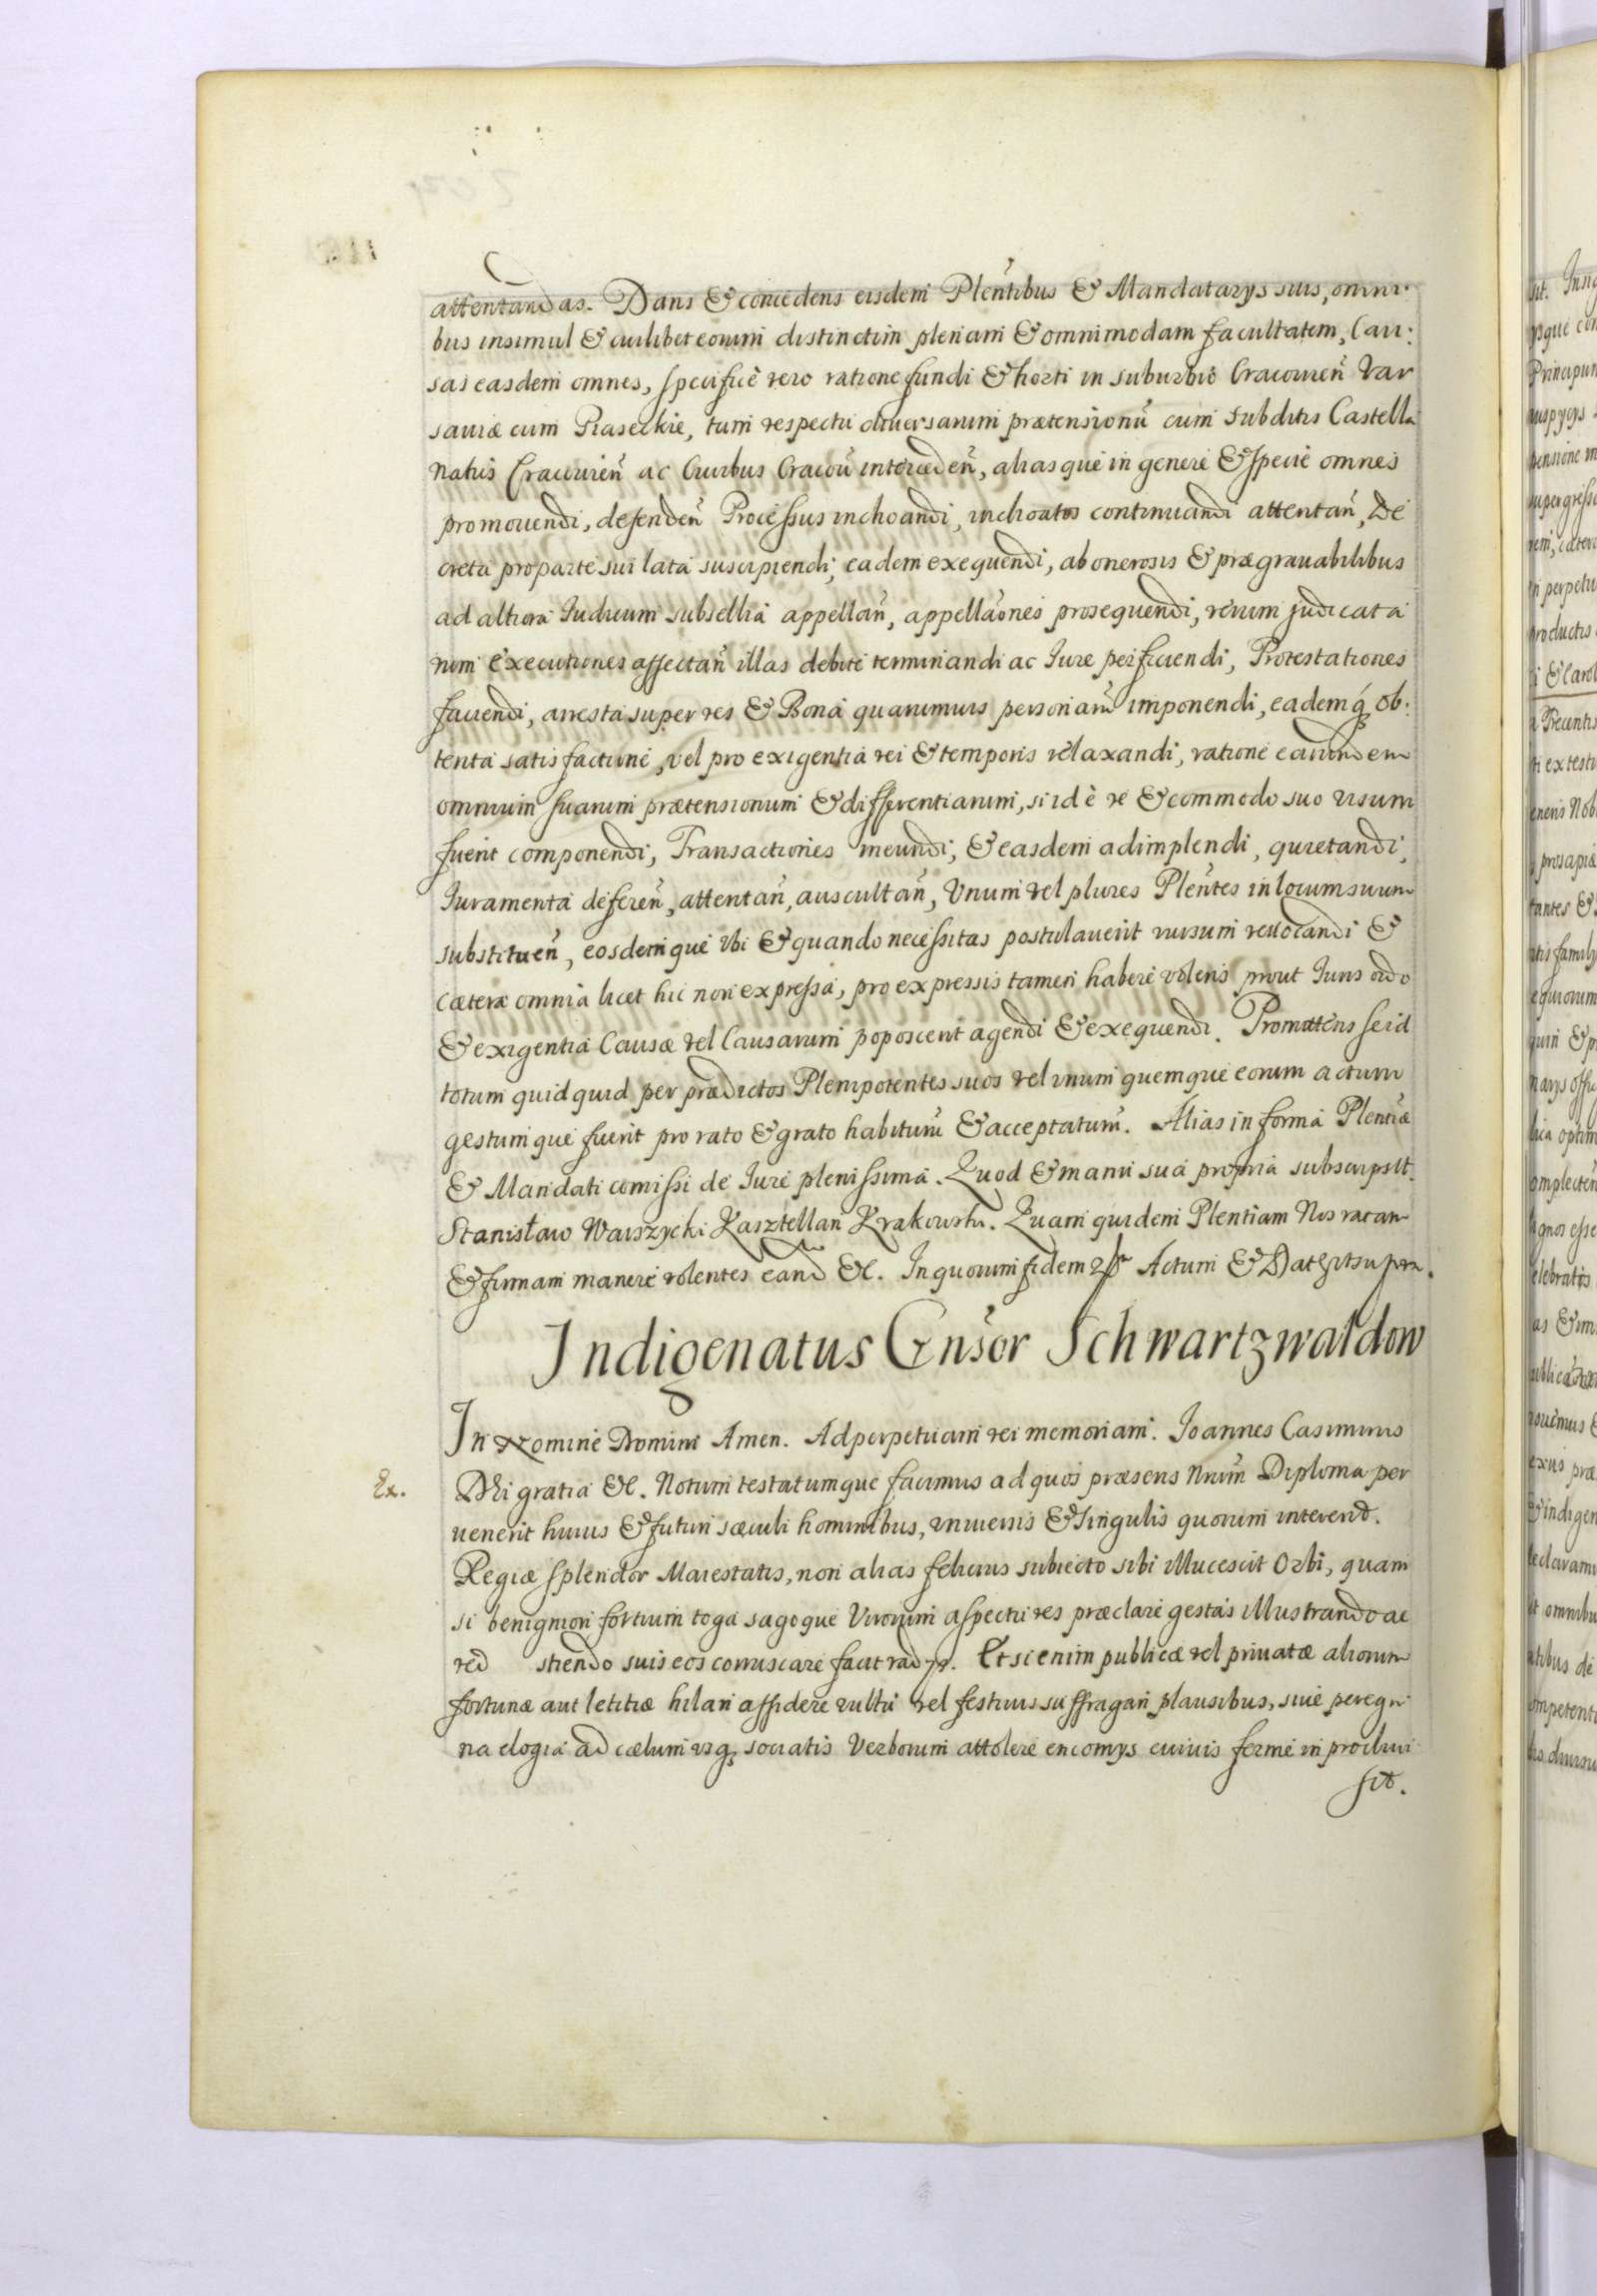 attentandas. Dans & concedens eisdem Plen̄tibus & Mandatarys suis, omni-
bus insimul & cuilibet eorum distinctim plenam & omnimodam facultatem, Cau:
sas easdem omnes, specificè vero ratione fundi & horti in suburbio Cracouien̄ Var
sauiæ cum Piaseckie, tum respectu diuersarum prætensionū cum subditis Castella
natus Cracouien̄ ac Ciuibus Cracou̅ interceden̄, aliasque in genere & specie omnes
promouendi, defenden̄ Processus inchoandi, inchoatos continuandi attentan̄, De
creta pro parte sui lata suscipiendi, eadem exequendi, ab onerosis & prægrauabilibus
ad altiora Iudicum subsellia appellan̄, appellao̅nes prosequendi, rerum judicata
rum executiones affectan̄ illas debite terminandi ac Iure perficiendi, Protestationes
faciendi, arresta super res & Bona quarumuis personarū imponendi, eademq́ ob:
tenta satisfactione, vel pro exigentia rei & temporis relaxandi, ratione earundem
omnium suarum prætensionum & differentiarum, si id è re & commodo suo visum
fuerit componendi, Transactiones ineundi, & easdem adimplendi, quietandi,
Iuramenta deferen̄, attentan̄, auscultan̄, Vnum vel plures Plen̄tes in locum suum
substituen̄, eosdemque vbi & quando necessitas postulauerit rursum reuocandi &
cætera omnia licet hic non expressa, pro expressis tamen habere volens prout Iuris ordo
& exigentia Causæ vel Causarum poposcerit agendi & exequendi. Promittens se id
totum quidquid per prædictos Plenipotentes suos vel vnumquemque eorum actum
gestumque fuerit pro rato & grato habiturū & acceptaturū. Alias in forma Plen̄tiæ
& Mandati comissi de Iure plenissima. Quod & manu sua propria subscripsit.
Stanisław Warszycki Kasztellan Krakowski. Quam quidem Plentiam Nos ratam
& firmam manere volentes eand &c. In quorum fidem Actum & Dat ut supra.
Indigenatus Gn̄sor Schwartzwaldow
In Nomine Domini Amen. Ad perpetuam rei memoriam. Ioannes Casimirus
Ex. DEi gratia &c. Notum testatumque facimus ad quos præsens Nrūm Diploma per
uenerit huius & futuri sæculi hominibus, vniuersis & singulis quorum intererit.
Regiæ splendor Maiestatis, non alias felicius subiecto sibi illucescit Orbi, quam
si benigniori fortium toga sagoque Virorum aspectu res præclare gestas illustrando ac
red stiendo suis eos corruscare facit radys. Etsi enim publicæ vel priuatæ aliorum
fortunæ aut letitiæ hilari assidere vultu vel festiuis suffragari plausibus, siue peregri
na elogia ad cælum vsq, sociatis Verborum attolere encomys cuiuis ferme in procliui
sit.